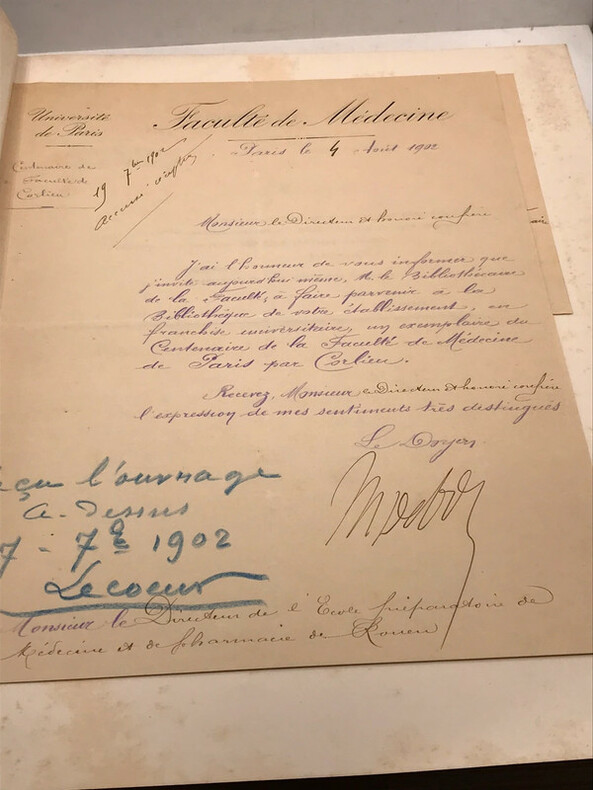 Université
de Paris
Faculté de Médecine
Paris le 4 Août 1902
Centenaire de
Faculté de
Corlieu
19 7bre 1902
accusé
Monsieur le Directeur et honoré confrère
J'ai l'honneur de vous informer que
j'invite aujourd'hui même, M. le Bibliothécaire
de la Faculté, à faire parvenir à la
Bibliothèque de votre établissement, en
franchise universitaire, un exemplaire du
Centenaire de la Faculté de Médecine
de Paris par Corlieu.
Recevez, Monsieur le Directeur et honoré confrère
l'expression de mes sentiments très distingués
Le Doyen
eçu l'ouvrage
ci-dessus
7 - 7bre 1902
Lecoeur
Monsieur le Directeur de l'Ecole préparatoire de
Médecine et de pharmacie de Rouen